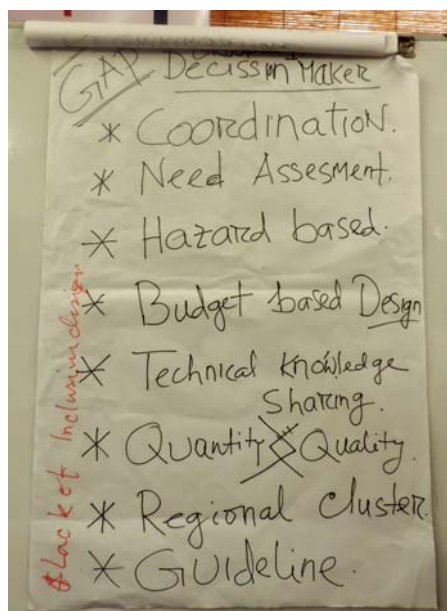 GAP Decission Maker
* Coordination.
* Need Assesment.
* Hazard based.
* Budget based Design
* Technical Knowledge
Sharing.
* Quantity Quality.
* Regional Cluster.
* Guideline.
* Lack of Inclusion design